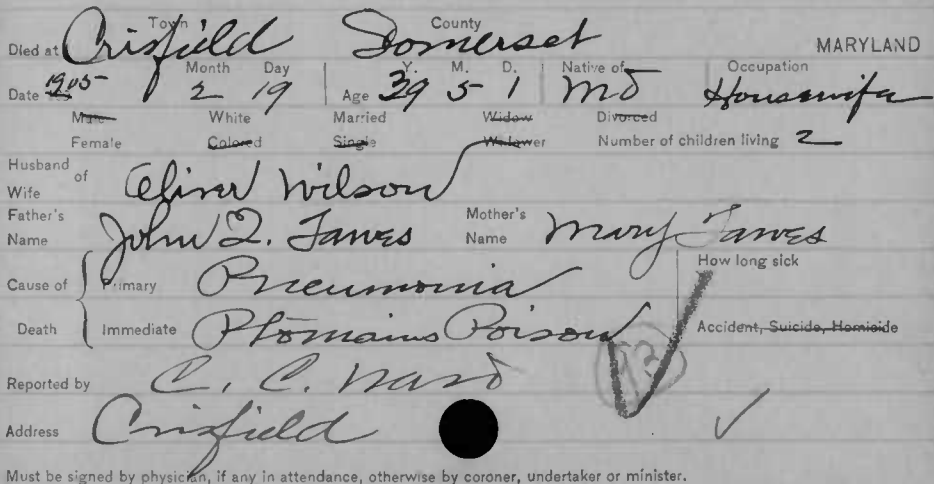 Town County
Died at Crisfield Somerset MARYLAND
Month Day Y. M. D. Native of Occupation
Date 1905 2 19 Age 39 5 1 Md Housewife
Male White Married Widow Divorced
Female Colored Single Widower Number of children living 2
Husband
Wife of Oliver Wilson
Father's Mother's
Name John Q. Tawes Name Mary Tawes
How long sick
Cause of Primary Pneumonia
Death Immediate Ptomains Poison Accident, Suicide, Homicide
93
Reported by C. C. Ward
Address Crisfield
Must be signed by physician, if any in attendance, otherwise by coroner, undertaker or minister.